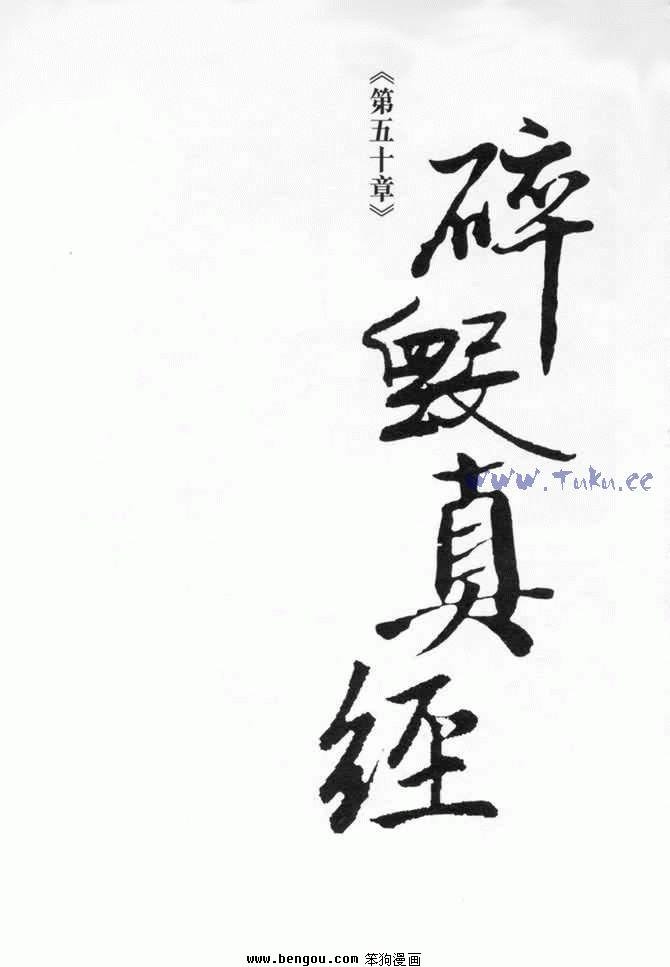 《第五十章》
碎毀真經
www.Tuku.cc
www.bengou.com 笨狗漫画